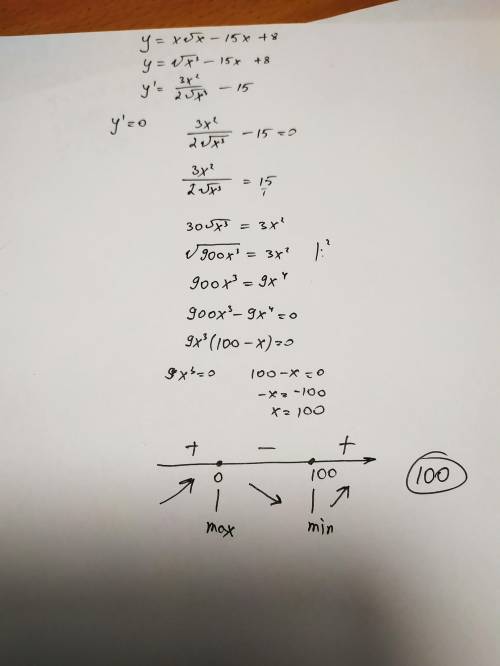 y = x√x - 15x + 8
y = √x³ - 15x + 8
y' = 3x²/2√x³ - 15
y'=0 3x²/2√x³ - 15 = 0
3x²/2√x³ = 15/1
30√x³ = 3x²
√900x³ = 3x² |:²
900x³ = 9x⁴
900x³ - 9x⁴ = 0
9x³(100 - x) = 0
9x³=0 100 - x = 0
-x = -100
x = 100
+ - +
0 100
max min
100